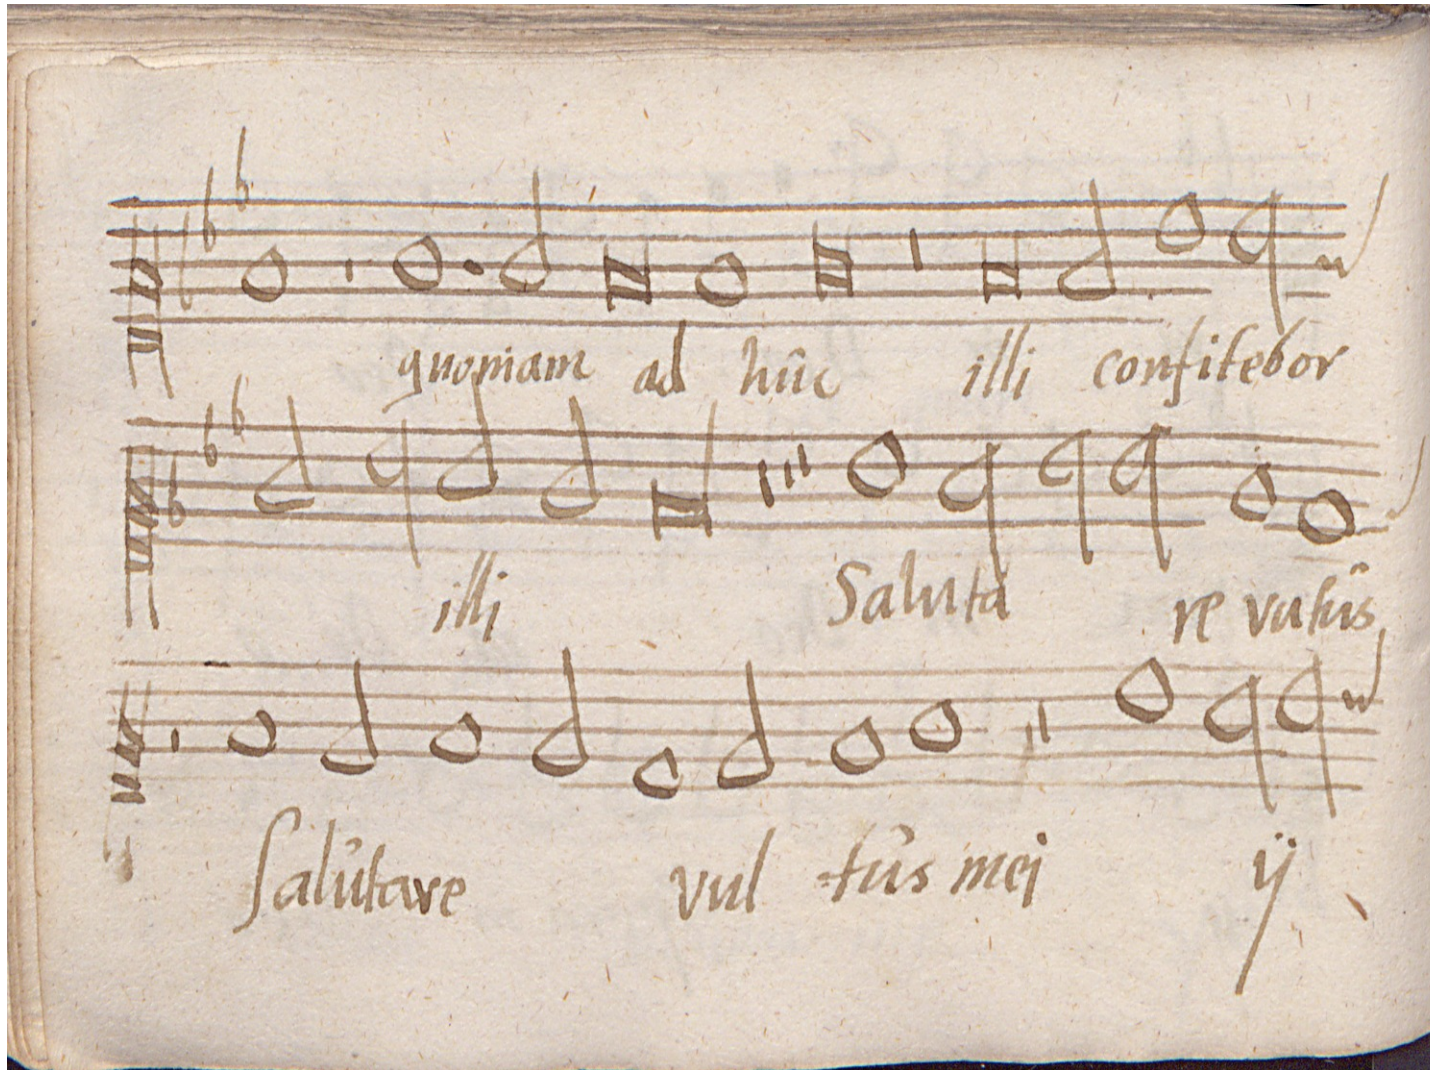 quoniam ad hûc illi confitebor
illi Saluta re vutûs
Salûtare vul tûs mei ij